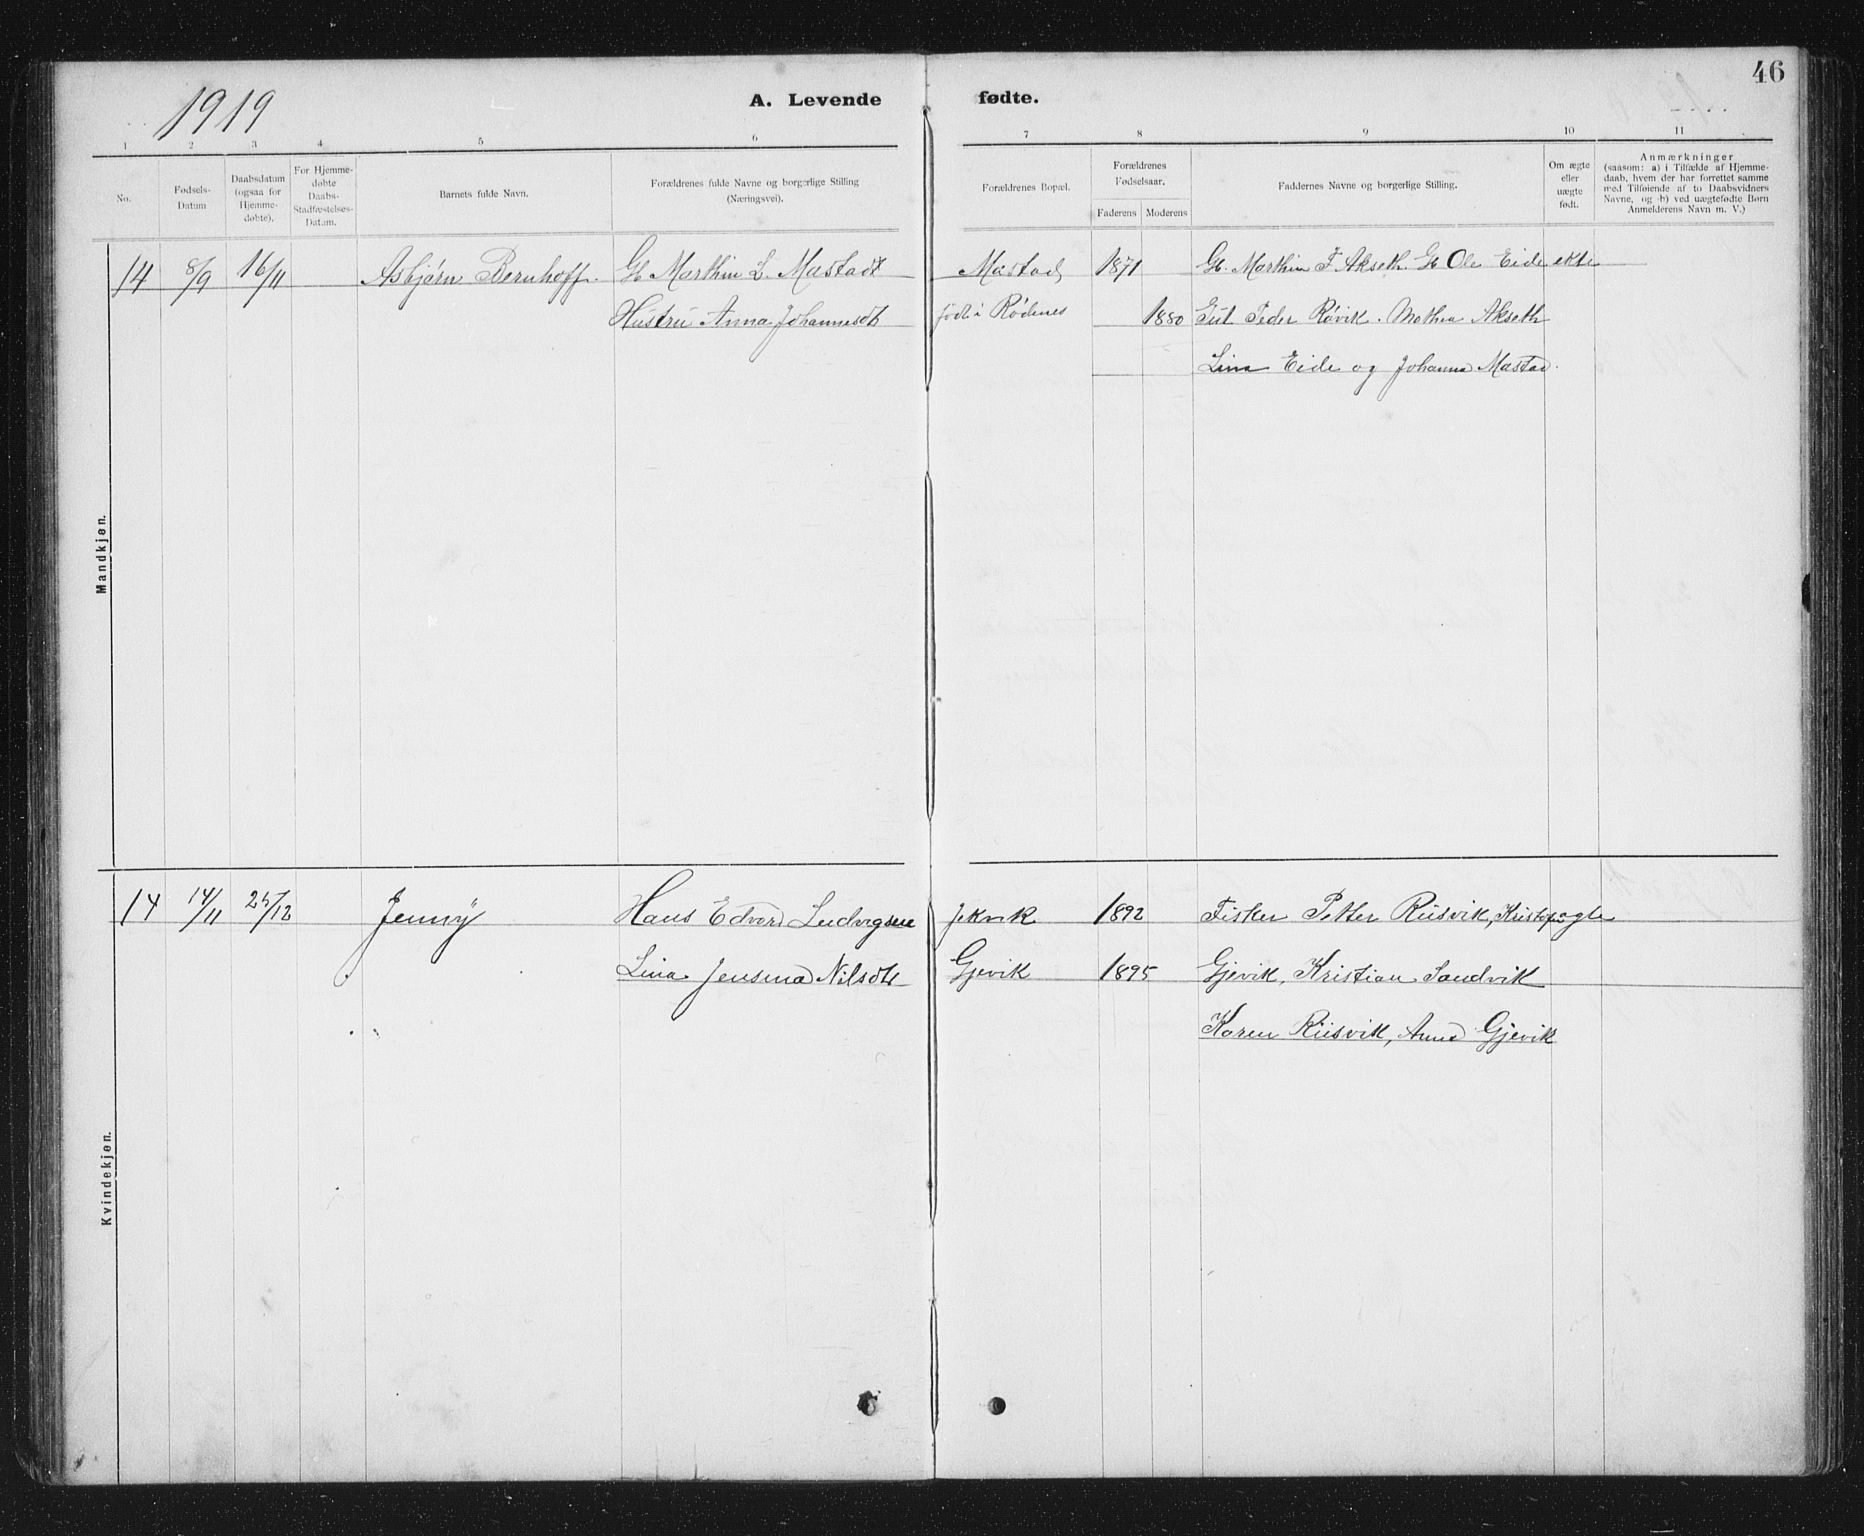 46
1919
A. Levende fødte.
1 2 3 4 5 6 7 8 9 10 11
No.
Fødsels-
Datum
Daabsdatum
(ogsaa for
Hjemme-
døbte).
For Hjemme-
døbte
Daabs-
Stadfæstelses-
Datum.
Barnets fulde Navn.
Forældrenes fulde Navne og borgerlige Stilling
(Næringsvei).
Forældrenes Bopæl.
Forældrenes
Fødselsaar.
Faderens Moderens
Faddernes Navne og borgerlige Stilling.
Om ægte
eller
uægte
født.
Anmærkninger
(saasom: a) i Tilfælde af Hjemme-
daab, hvem der har forrettet samme
med Tilføiende af to Daabsvidners
Navne, og b) ved uægtefødte Børn
Anmelderens Navn m. V.)
Mandkjøn.
14 8/9 16/11 Asbjørn Bernhoff. G Marthin L. Mastadt Mastad 1871 G. Marthin F Akseth. G Ole Eide ekte
Hustru Anna Johannesdt født i Rødenes 1880 Peder Røvik. Mathea Akseth
Lina Eide og Johanna Mastad.
Kvindekjøn.
14 14/11 25/12 Jenny Hans Edvard Ludvigsen Jekvik 1892 Fisker Petter Riisvik, Kristof. ægte
Lina Jensina Nilsdt Gjevik 1895 Gjevik, Kristian Sandvik
Karen Riisvik, Anna Gjevik